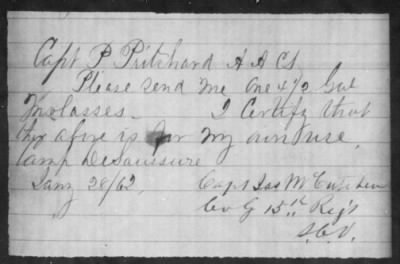 Capt P Pritchard A A CS
Please send me one & 1/2 Gal
Molasses - I Certify that
the above is for my own use,
Camp DeSaussure
Jany 28/62, Capt Jas McCutchen
Co G 15th Regt
S.C.V.